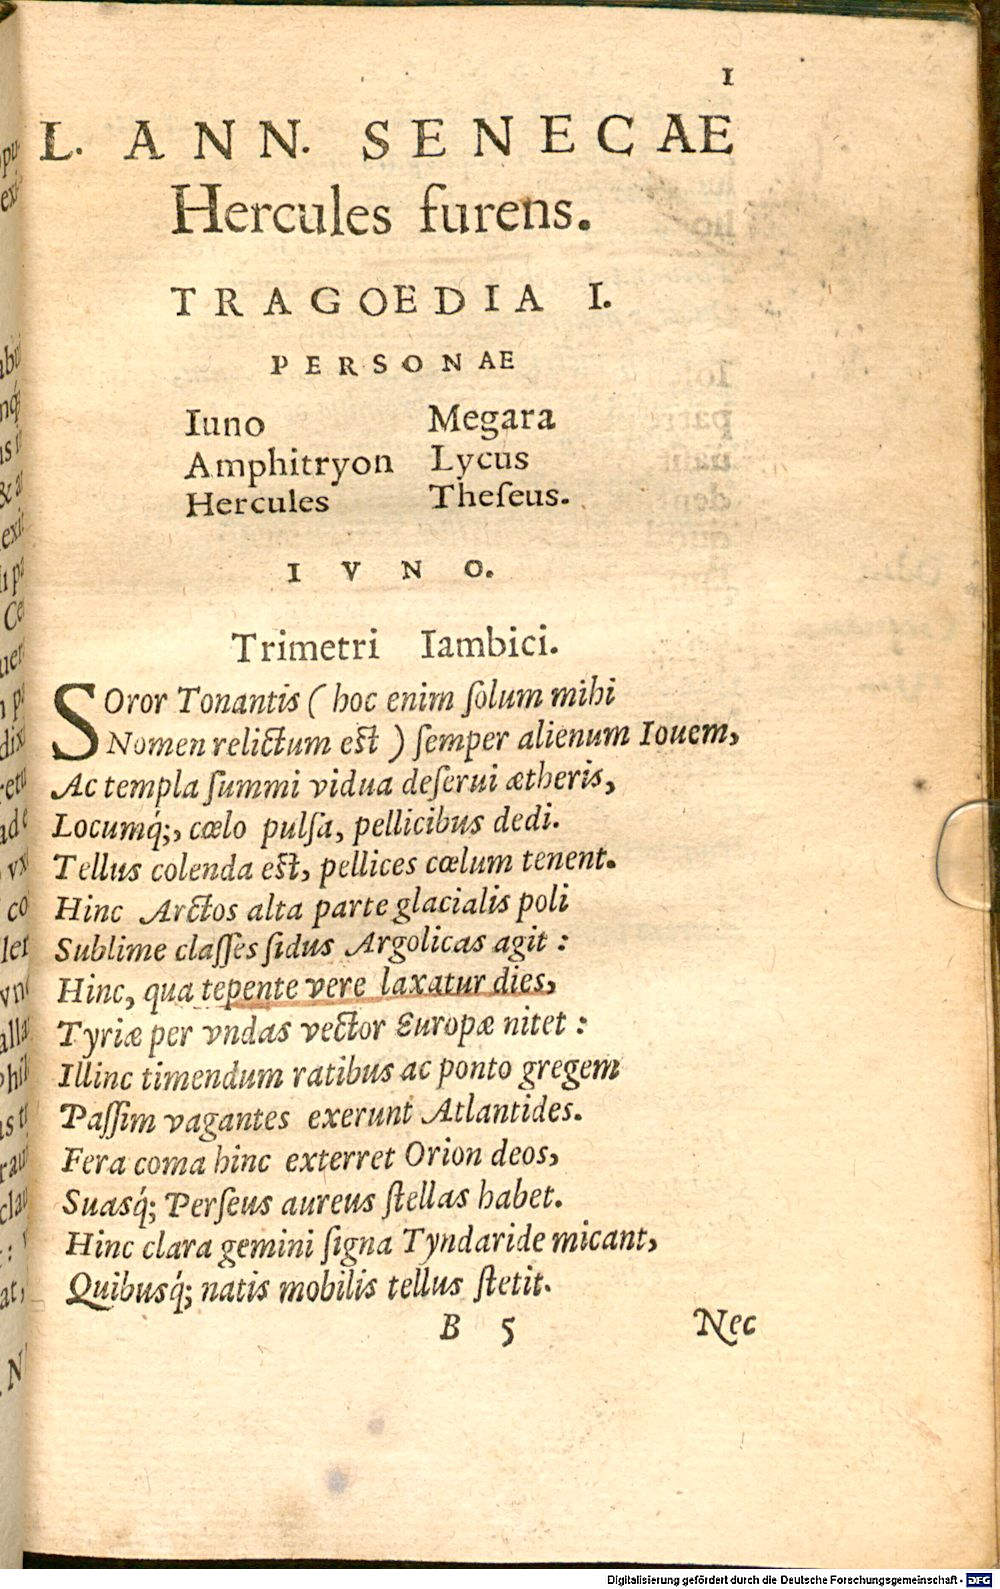 1
L. ANN. SENECAE
Hercules furens.
TRAGOEDIA I.
PERSONAE
Iuno Megara
Amphitryon Lycus
Hercules Theſeus.
IVNO.
Trimetri Iambici.
SOror Tonantis (hoc enim ſolum mihi
Nomen relictum eſt) ſemper alienum Iouem,
Ac templa ſummi vidua deſerui ætheris,
Locumq́;, cœlo pulſa, pellicibus dedi.
Tellus colenda eſt, pellices cœlum tenent.
Hinc Arctos alta parte glacialis poli
Sublime claſſes ſidus Argolicas agit:
Hinc, qua tepente vere laxatur dies,
Tyriæ per vndas vector Europæ nitet:
Illinc timendum ratibus ac ponto gregem
Paſſim vagantes exerunt Atlantides.
Fera coma hinc exterret Orion deos,
Suasq́; Perſeus aureus ſtellas habet.
Hinc clara gemini ſigna Tyndaride micant,
Quibusq́; natis mobilis tellus ſtetit.
B 5 Nec
Digitalisierung gefördert durch die Deutsche Forschungsgemeinschaft - DFG